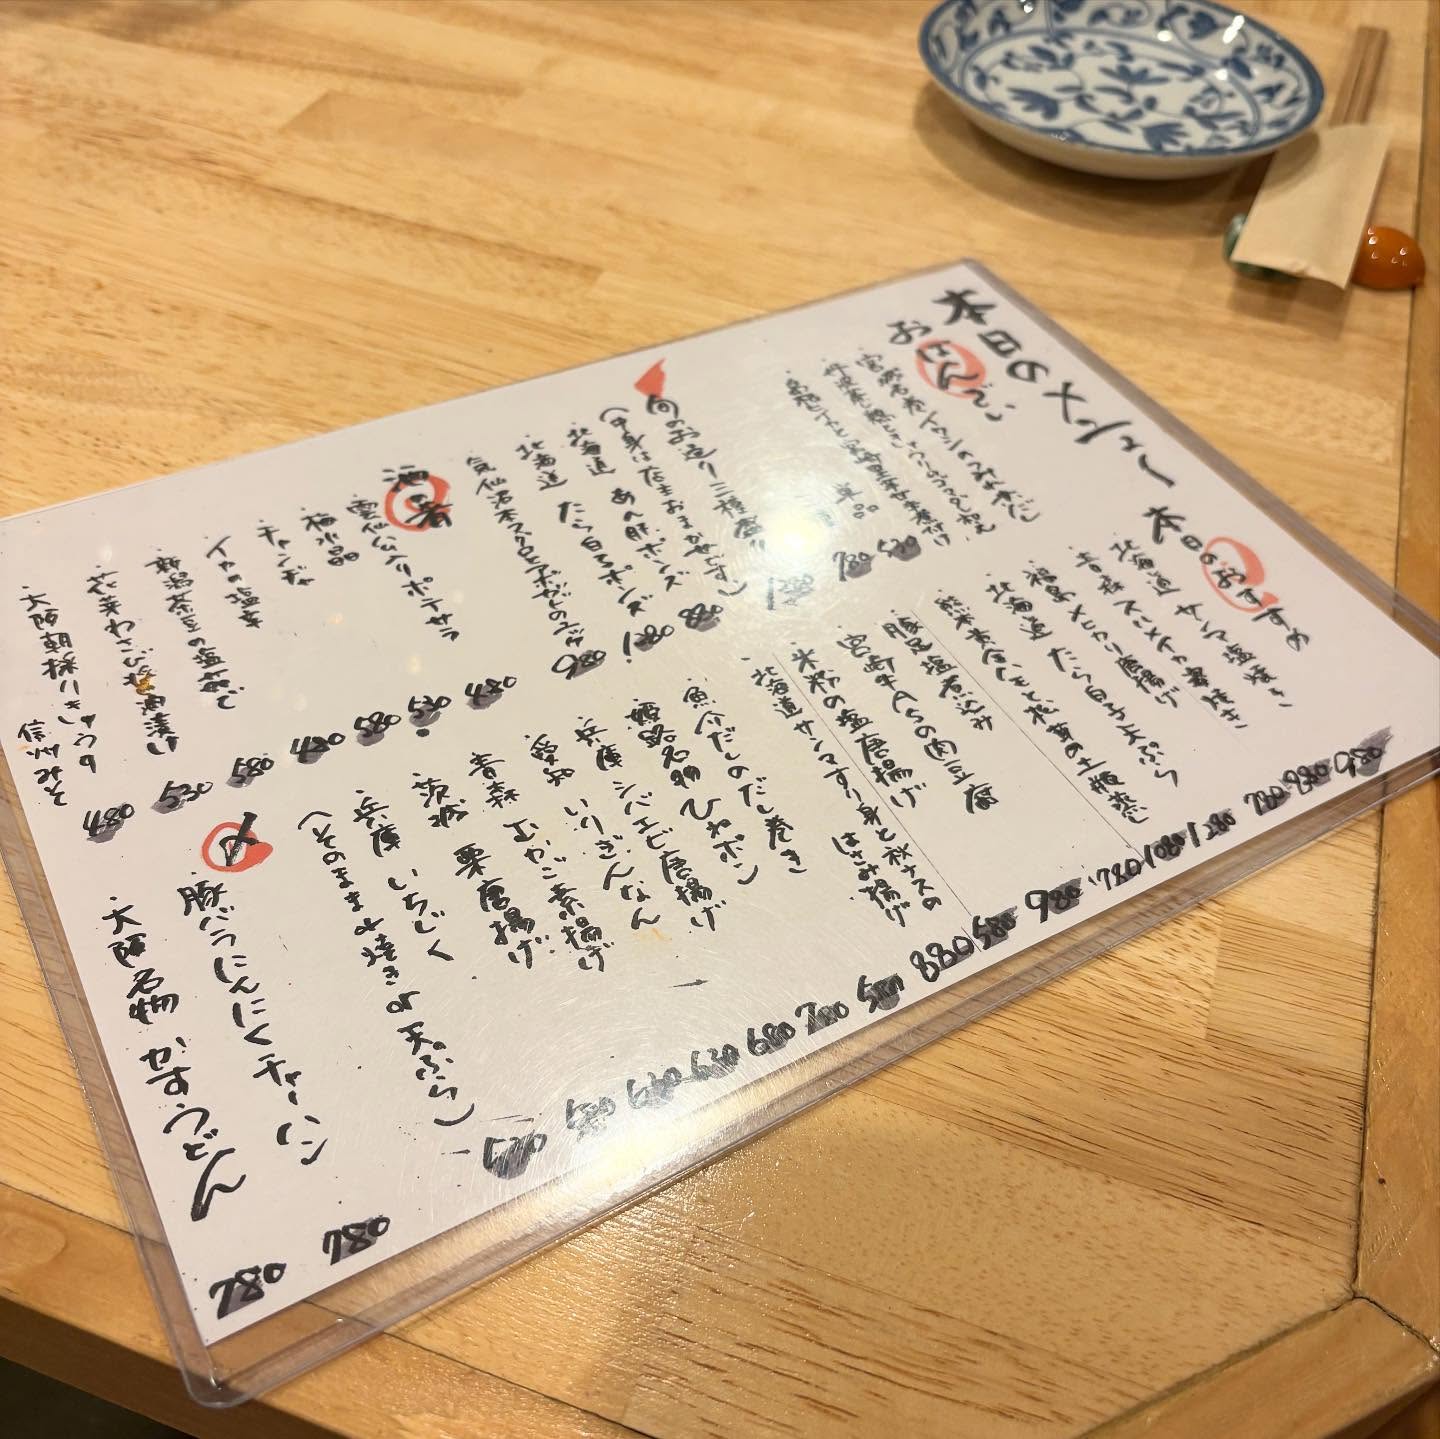 本日のメニュー
おばんざい
単品
780
530
旬のお造り三種盛り
(中身は店主おまかせです)
1280
北海道 あん肝ポンズ
880
北海道 たら白子ポンズ
1280
気仙沼本マグロとアボカドのユッケ
980
酒の肴
雲仙ハムポテサラ
480
梅水晶
530
チャンヂャ
580
イカの塩辛
480
新潟茶豆の塩茹で
580
花芽わさび醤油漬け
530
大阪朝採りきゅうり 信州みそ
480
本日のおすすめ
北海道 サンマ塩焼き
980
青森 スルメイカ串焼き
980
福島 メヒカリ唐揚げ
780
北海道 たら白子天ぷら
1280
熊本黄金ハモと松茸の土瓶蒸し
1080
豚足塩煮込み
780
宮崎牛A5の肉豆腐
980
米粉の塩唐揚げ
580
北海道サンマすり身と秋ナスのはさみ揚げ
880
魚介だしのだし巻き
580
姫路名物 ひねポン
780
兵庫 シバエビ唐揚げ
680
愛知 いりぎんなん
530
青森 むかご素揚げ
茨城 栗唐揚げ
580
兵庫 いちじく
(そのまま or 焼き or 天ぷら)
530
〆
豚バラにんにくチャーハン
780
大阪名物 かすうどん
780